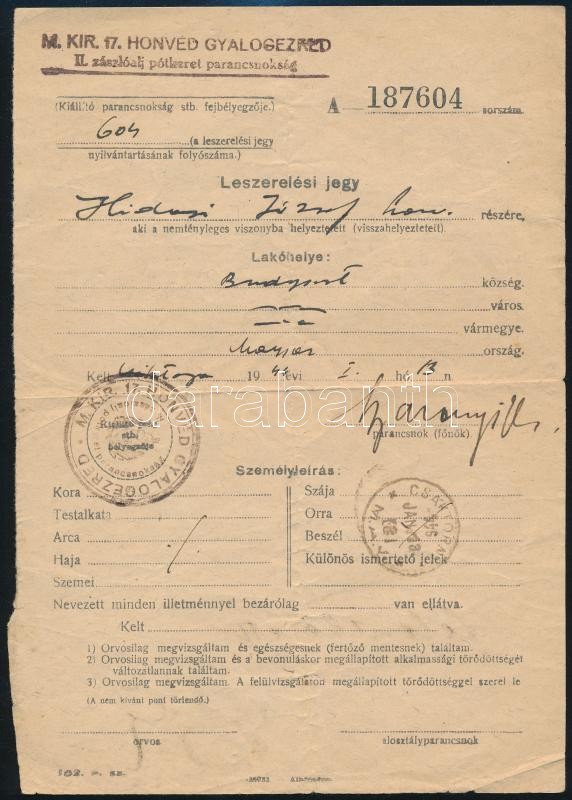 M. KIR. 17. HONVÉD GYALOGEZRED
II. zászlóalj pótkeret parancsnokság
(Kiállító parancsnokság stb. fejbélyegzője.)
A 187604 sorszám.
604 (a leszerelési jegy
nyilvántartásának folyószáma.)
Leszerelési jegy
Hidasi József hon. részére,
aki a nemtényleges viszonyba helyeztetett (visszahelyeztetett).
Lakóhelye:
Budapest község.
város.
vármegye.
Magyar ország.
Kelt 1944 évi I. hó n.
parancsnok (főnök).
M. KIR. 17. HONVÉD GYALOGEZRED
Kiállító
stb.
bélyegzője
parancsnokság
darabanth
Személyleírás:
Kora Szája
Testalkata Orra
Arca Beszél
Haja Különös ismertető jelek
Szemei
CSÁKTORNYA
JAN
Nevezett minden illetménnyel bezárólag van ellátva.
Kelt
1) Orvosilag megvizsgáltam és egészségesnek (fertőző mentesnek) találtam.
2) Orvosilag megvizsgáltam és a bevonuláskor megállapított alkalmassági törődöttségét
változatlannak találtam.
3) Orvosilag megvizsgáltam. A felülvizsgálaton megállapított törődöttséggel szerel le
(A nem kívánt pont törlendő.)
orvos alosztályparancsnok
102. r. sz.